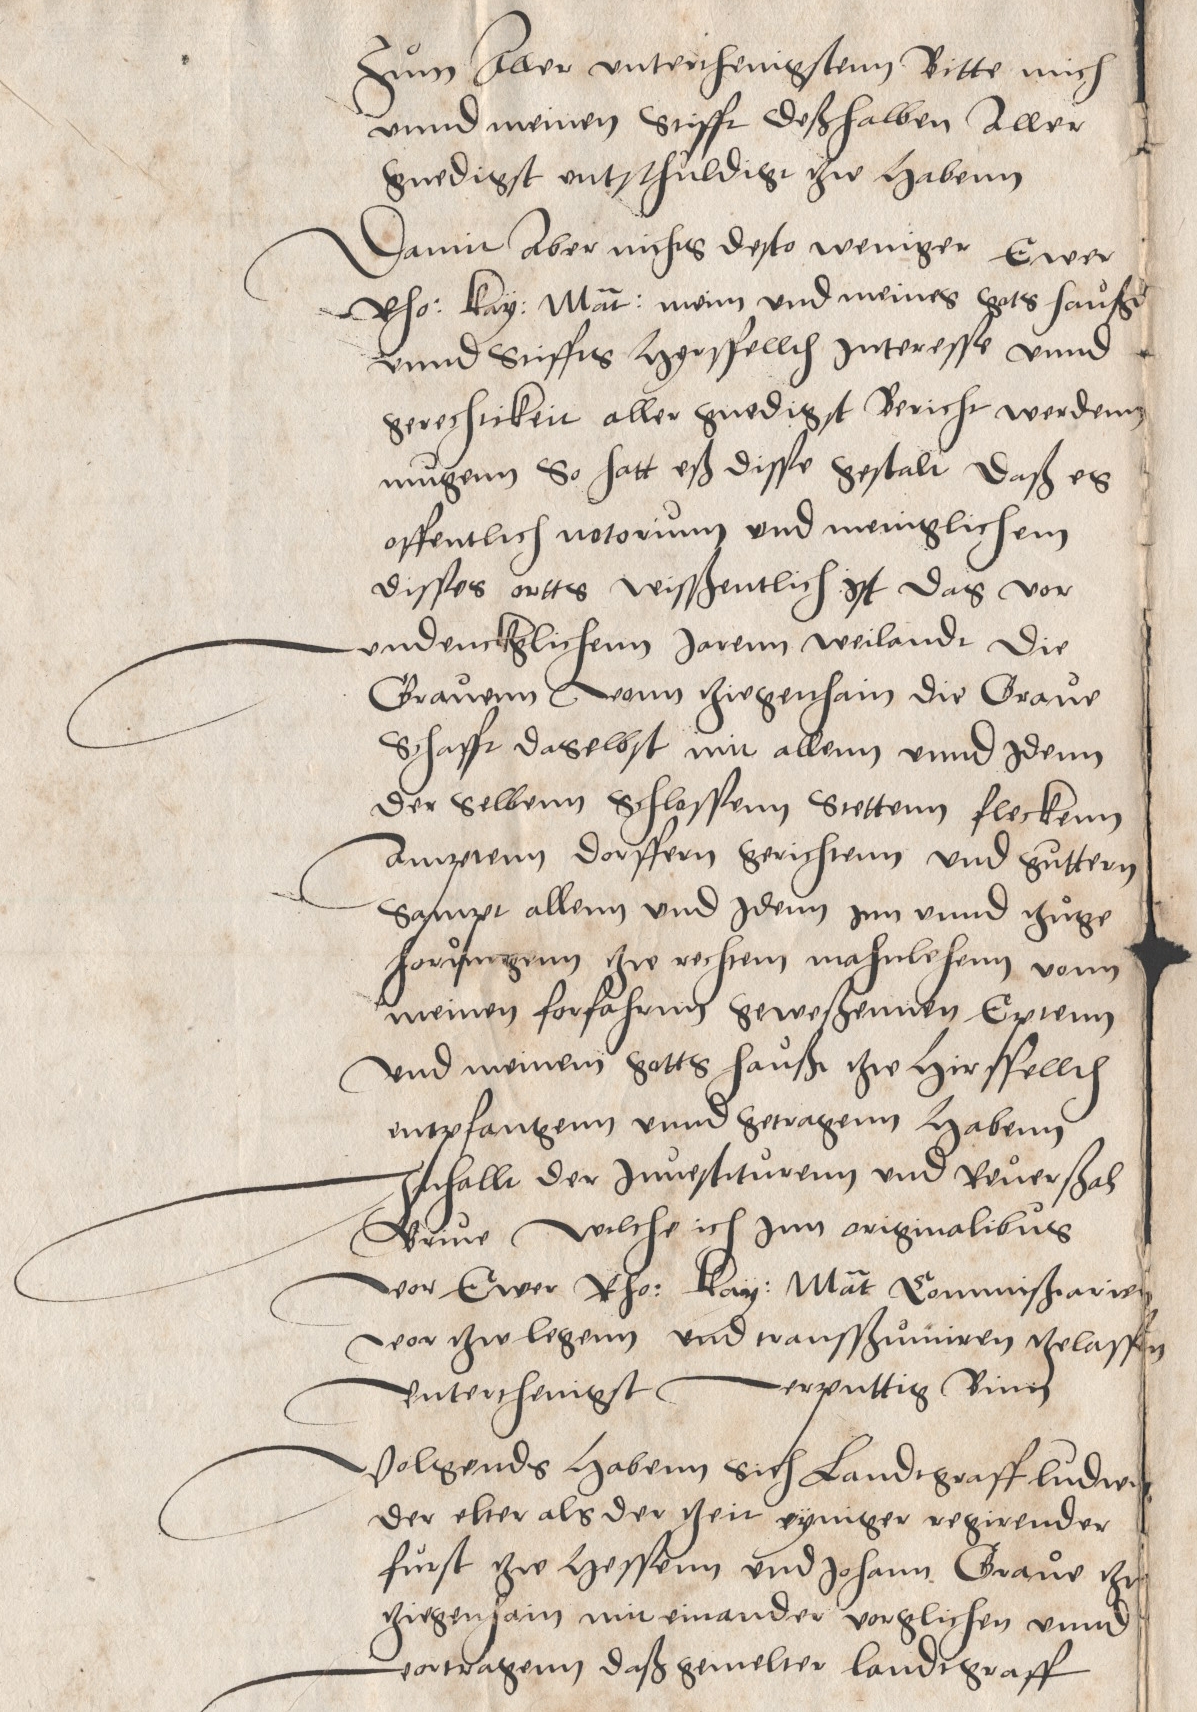 Zum Aller unterthenigstenn Bitte mich
unnd meinen Stifft deßhalben Aller
gnedigst entschuldigt zue Habenn
Damit Aber nichts desto weniger Ewer
Rho: Kay: Matt: mein und meines gots haußs
unnd Stiffts Hersfelld Interesse unnd
gerechtikeit aller gnedigst Bericht werdenn
mugenn So hatt eß disse gestalt Daß es
offentlich notorium und meniglichem
disses ortts wisßentlich ist das vor
undencklichenn Jarenn weilandt Die
Grauenn vonn Ziegenhain die Graue
Schafft daselbst mit allenn unnd Jdenn
der selbenn Schlossenn Stettenn fleckenn
Ampten dorffern gerichtenn und guttern
Sampt allenn und Jdenn Jnn unnd zuge
horungenn zue rechtem mahnlehenn vonn
meinen forfahrnn geweßennen Eptenn
und meinem gotts hauße zue Hirsfelld
entpfangenn unnd getragenn Habenn
Inhallt der Jnuestiturenn und Reuerßal
Briue welche ich Jnn originalibus
vor Ewer Rho: Kay: Matt Commißarien
vor zue legenn und transsumiren zelassen
unterthenigst erputtig Binn
Volgends Habenn sich Landtgraff Ludwig
der elter als der Zeit eyniger regirender
furst zue Hessenn und Johann Graue zu
Ziegenhain mit einander vorglichen unnd
vortragenn daß gemelter landtgraff